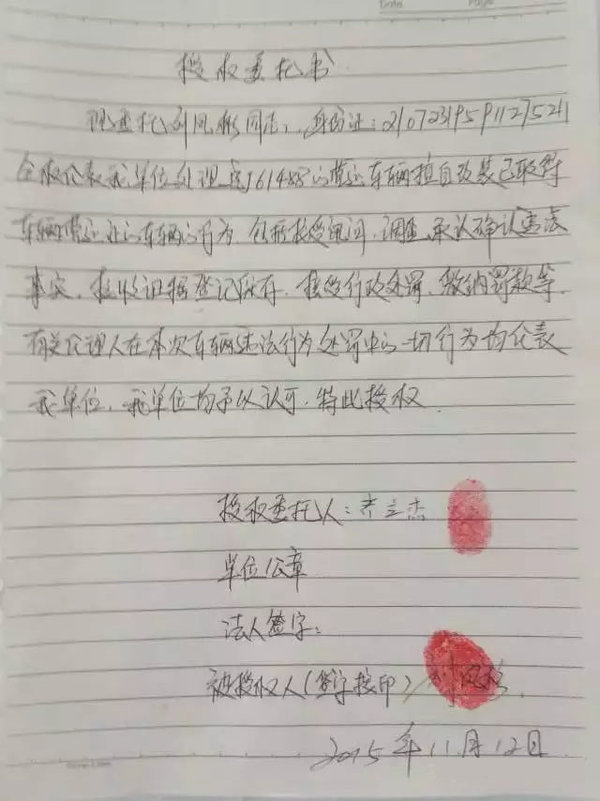 Date Page
授权委托书
现委托刘凤彬同志,身份证:210723195911275211
全权代表我单位处理 161488的营运车辆擅自改装已取得
车辆营运证的车辆的行为,包括接受询问、调查、承认确认违法
事实、接收证据登记保存、接受行政处罚、缴纳罚款等.
有关代理人在本次车辆违法行为处罚中的一切行为均代表
我单位,我单位均予以认可.特此授权
授权委托人:齐立杰
单位公章
法人签字:
被授权人(签字按印)
2015年11月12日